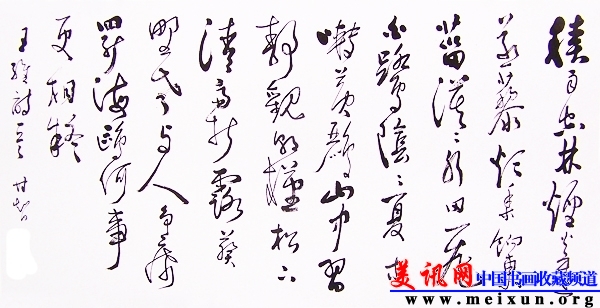 積雨空林煙火遲
蒸藜炊黍餉東
菑漠漠水田飛
白鷺陰陰夏木
囀黃鸝山中習
靜觀朝槿松下
清齋折露葵
野老與人爭席
罷海鷗何事
更相疑
王維詩
美讯网中国书画收藏频道
www.meixun.org